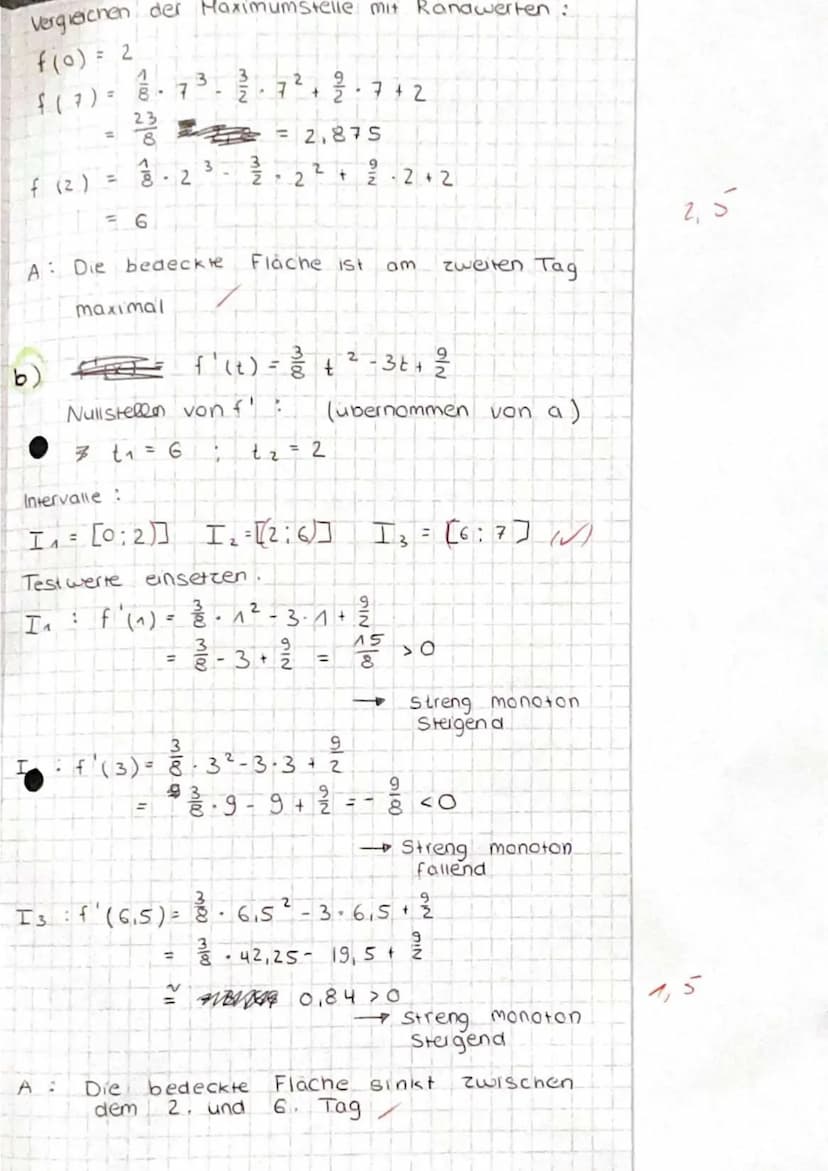 Vergleichen der Maximumstelle mit Randwerten :
f(0) = 2
f(7) = 1/8 · 7³ - 3/2 · 7² + 9/2 · 7 + 2
= 23/8 = 2,875
f(2) = 1/8 · 2³ - 3/2 · 2² + 9/2 · 2 + 2
= 6
2,5
A : Die bedeckte Fläche ist am zweiten Tag
maximal
b) f'(t) = 3/8 t² - 3t + 9/2
Nullstellen von f' : (übernommen von a)
t₁ = 6 ; t₂ = 2
Intervalle :
I₁ = [0;2)] I₂ = [(2;6)] I₃ = [6;7] (✓)
Testwerte einsetzen.
I₁ : f'(1) = 3/8 · 1² - 3·1 + 9/2
= 3/8 - 3 + 9/2 = 15/8 > 0
→ Streng monoton
Steigend
I : f'(3) = 3/8 · 3² - 3·3 + 9/2
= 3/8 · 9 - 9 + 9/2 = - 9/8 < 0
→ Streng monoton
fallend
I₃ : f'(6,5) = 3/8 · 6,5² - 3 · 6,5 + 9/2
= 3/8 · 42,25 - 19,5 + 9/2
≈ 0,84 > 0
1,5
→ Streng monoton
Steigend
A : Die bedeckte Fläche sinkt zwischen
dem 2. und 6. Tag